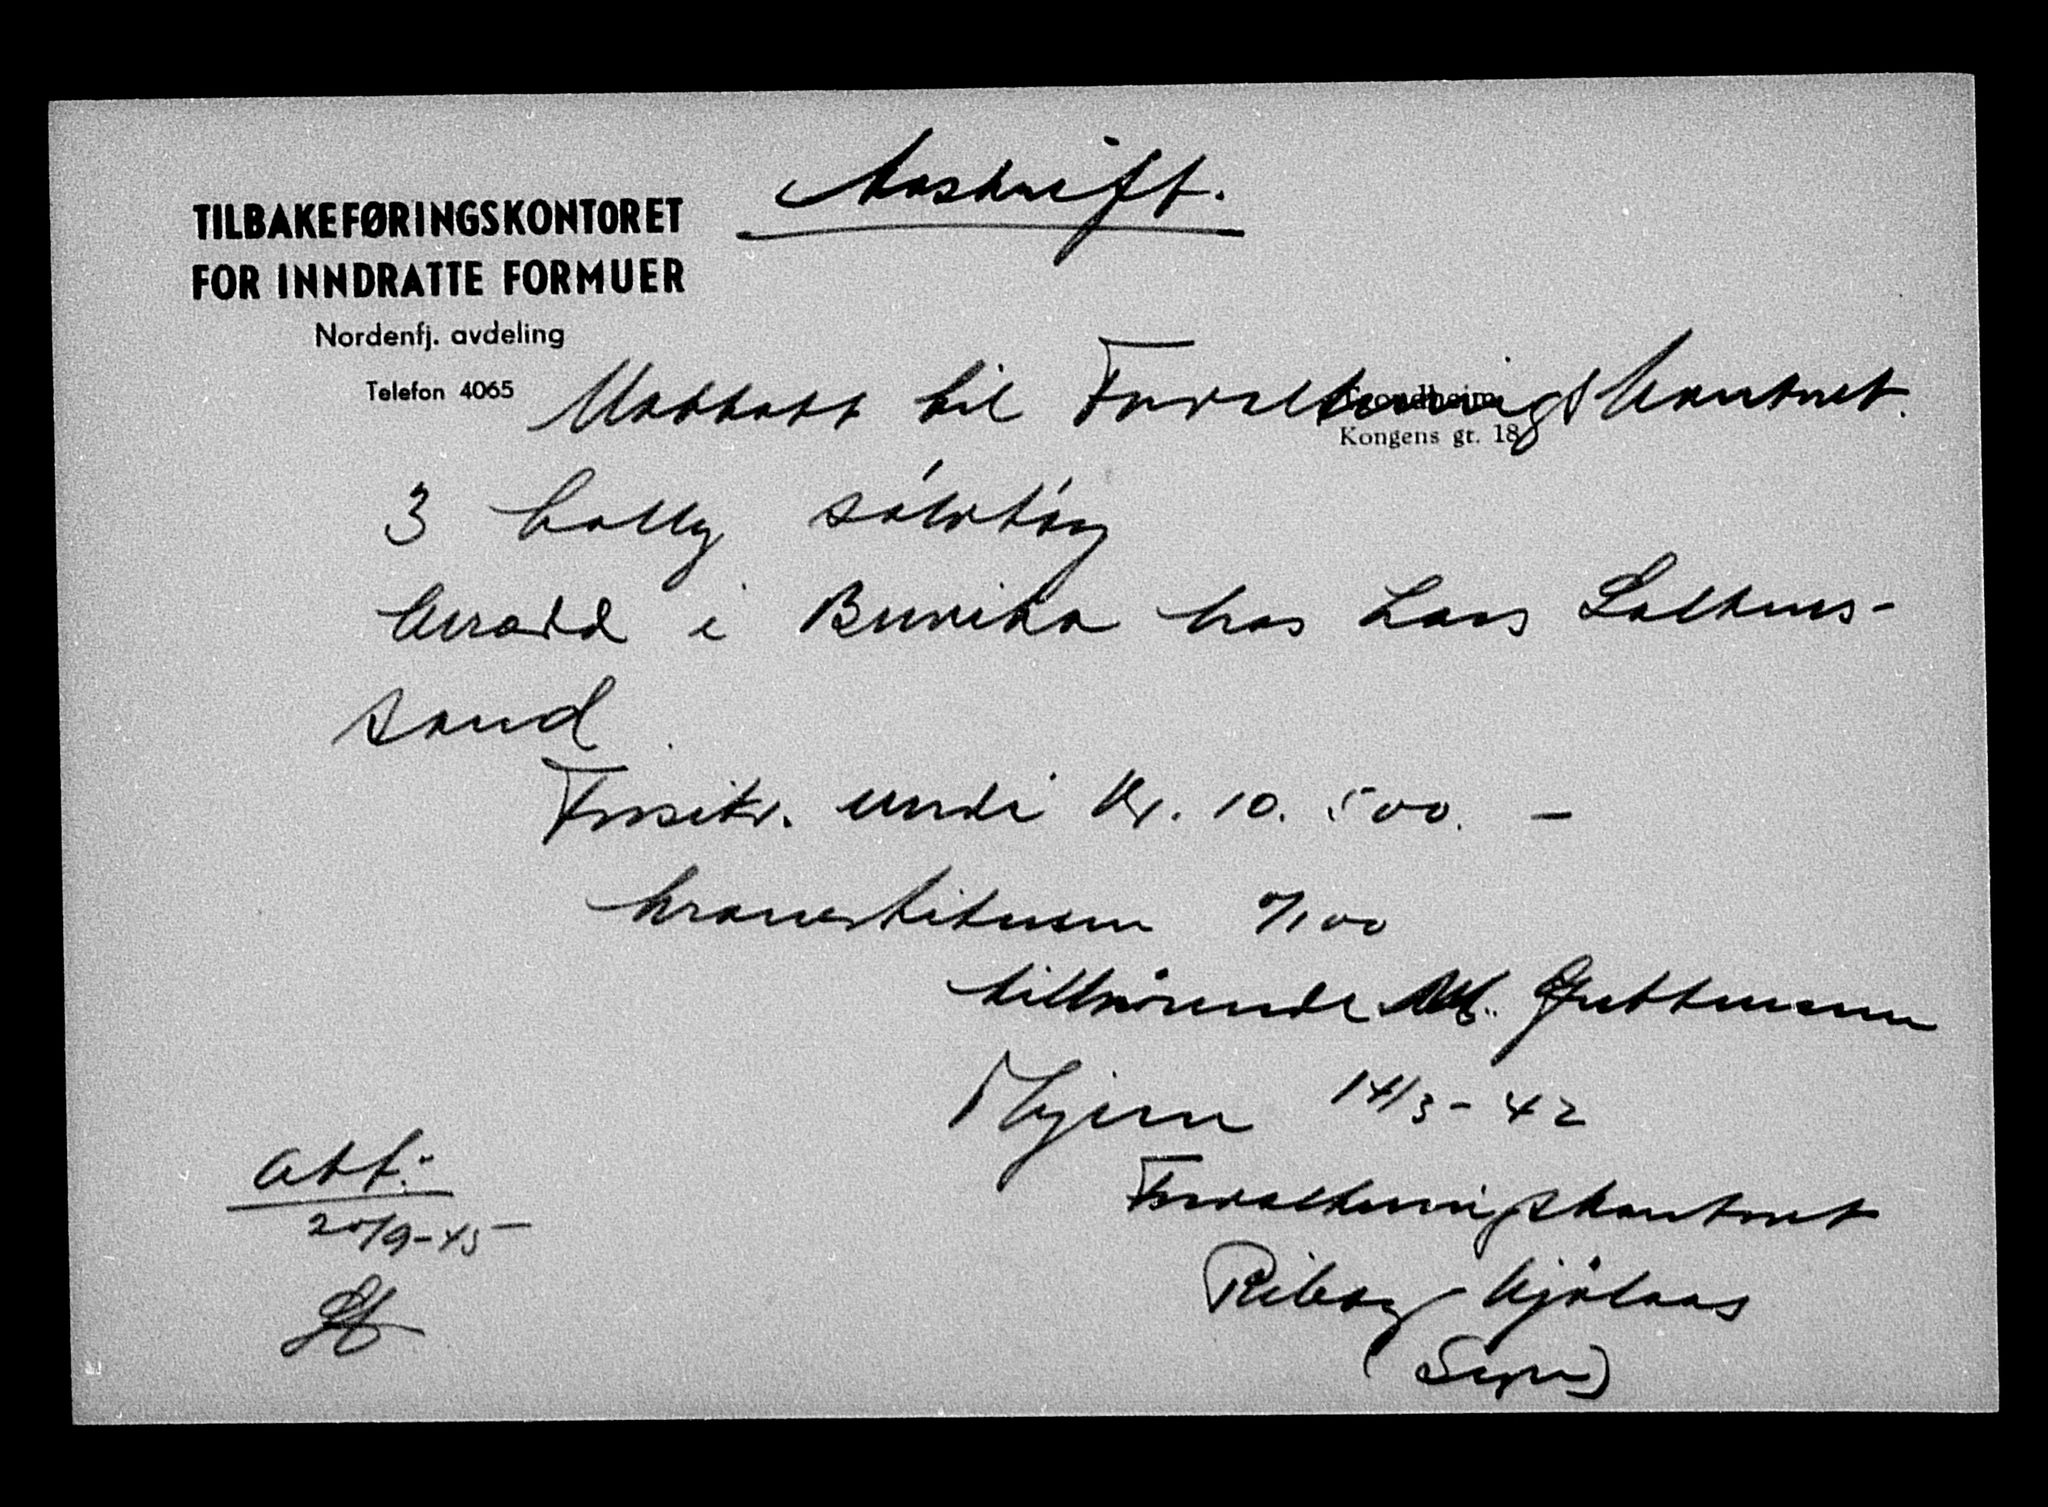 Avskrift.
TILBAKEFØRINGSKONTORET
FOR INNDRATTE FORMUER
Nordenfj. avdeling
Telefon 4065
Trondheim
Kongens gt. 18
Mottatt til Forvaltningskontoret.
3 colly sölvtöy
henstd i Buvika hos Lars Saltnes-
sand
Forsikr. verdi Kr. 10.500. –
kronertitusen 0/100
tilhørende M. Guttmann
Thjem 14/3 - 42
Forvaltningskontoret
Reidar Kjölaas
(Sign)
att:
20/9-45